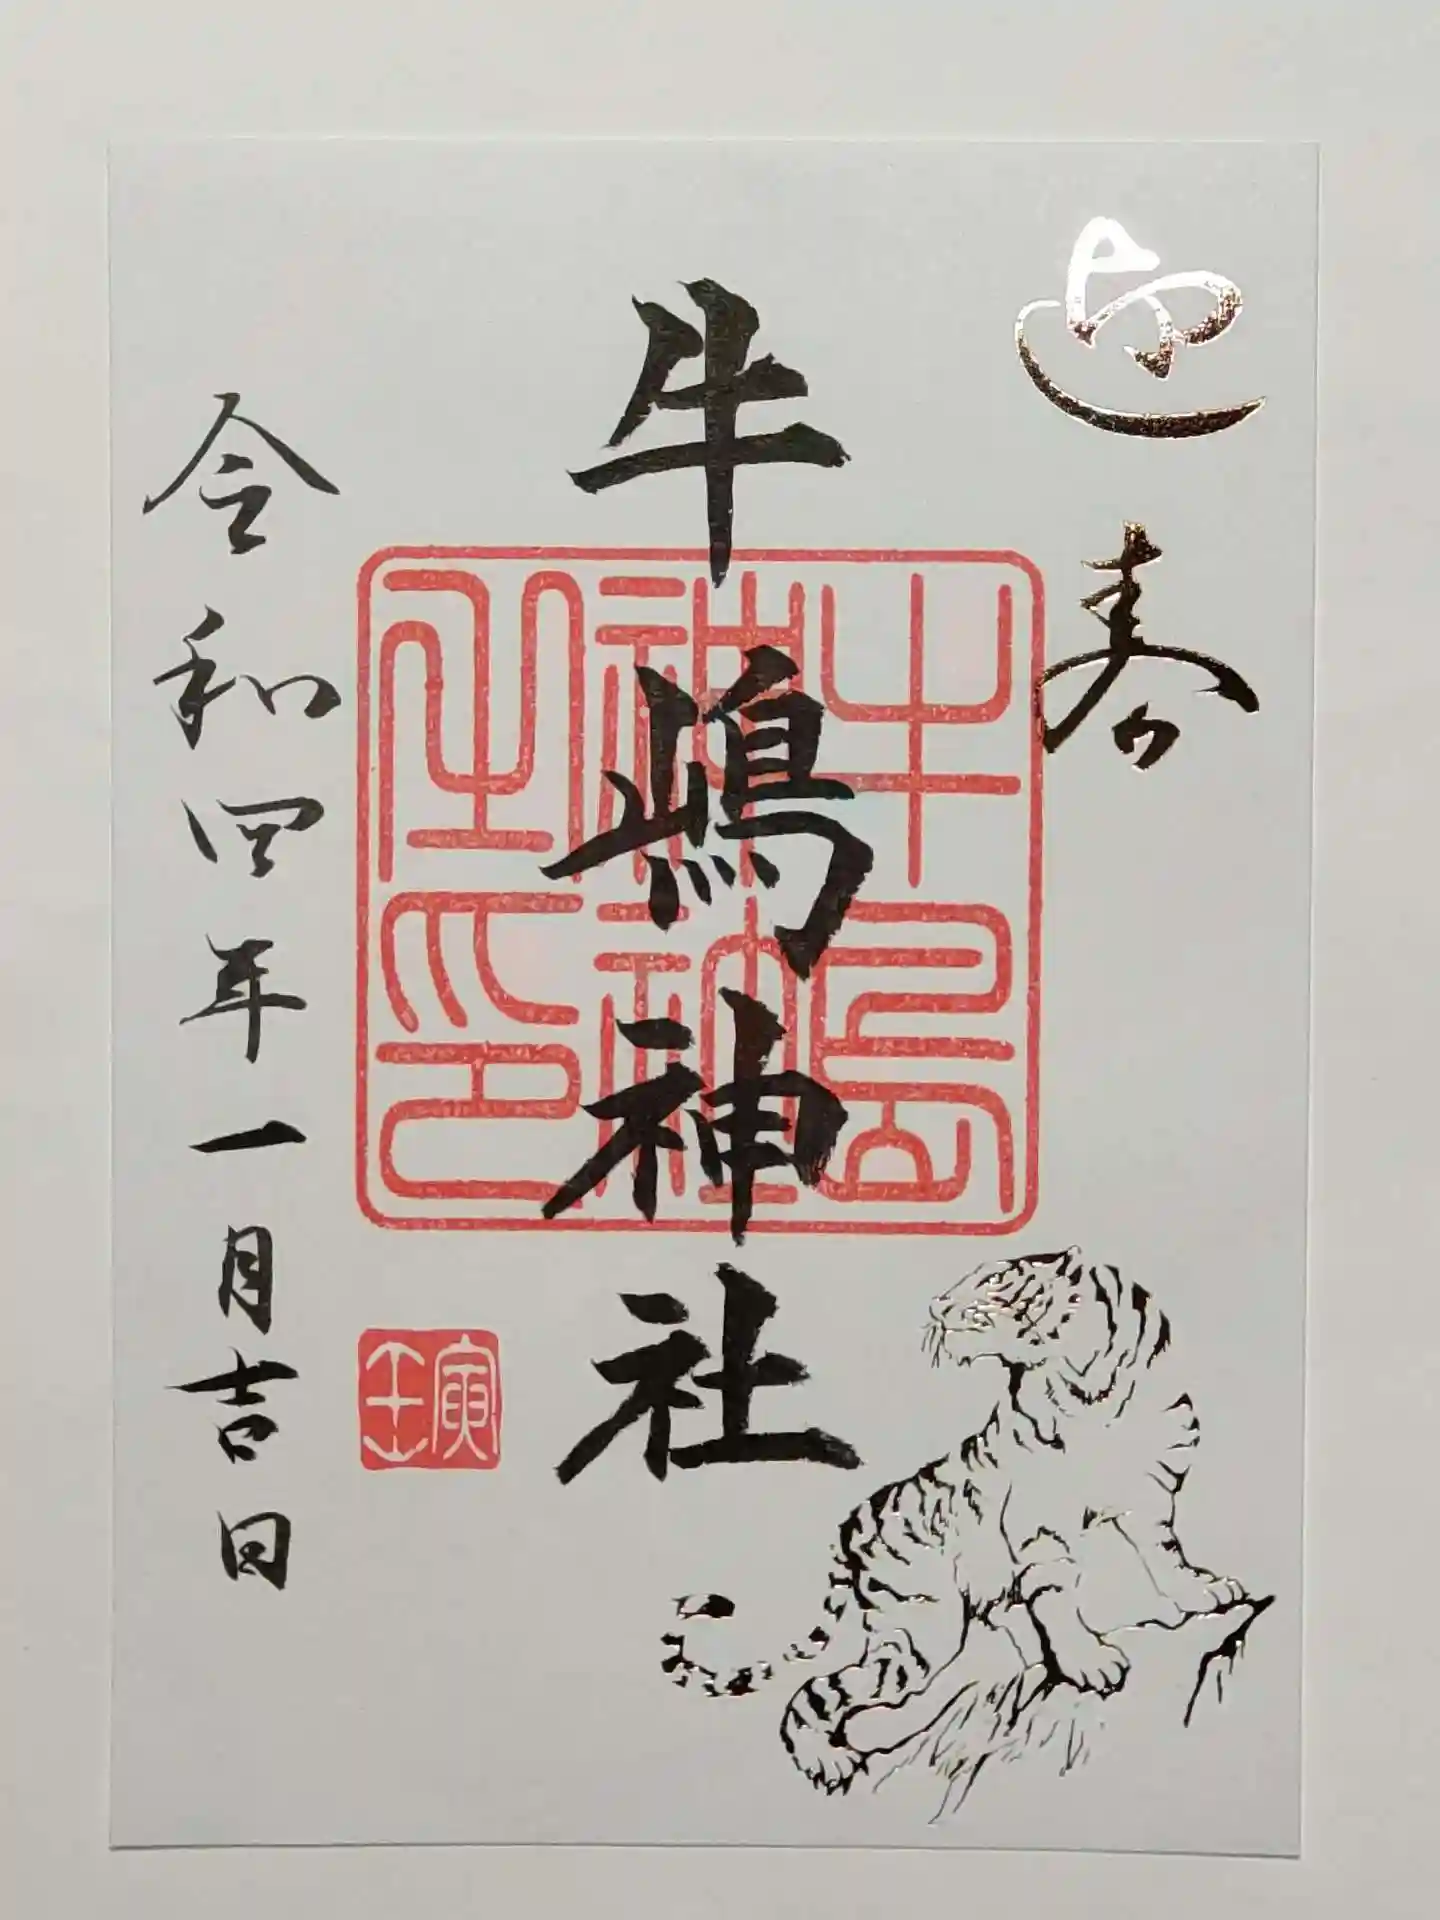 迎春
牛嶋神社
牛嶋神社之印
壬寅
令和四年一月吉日